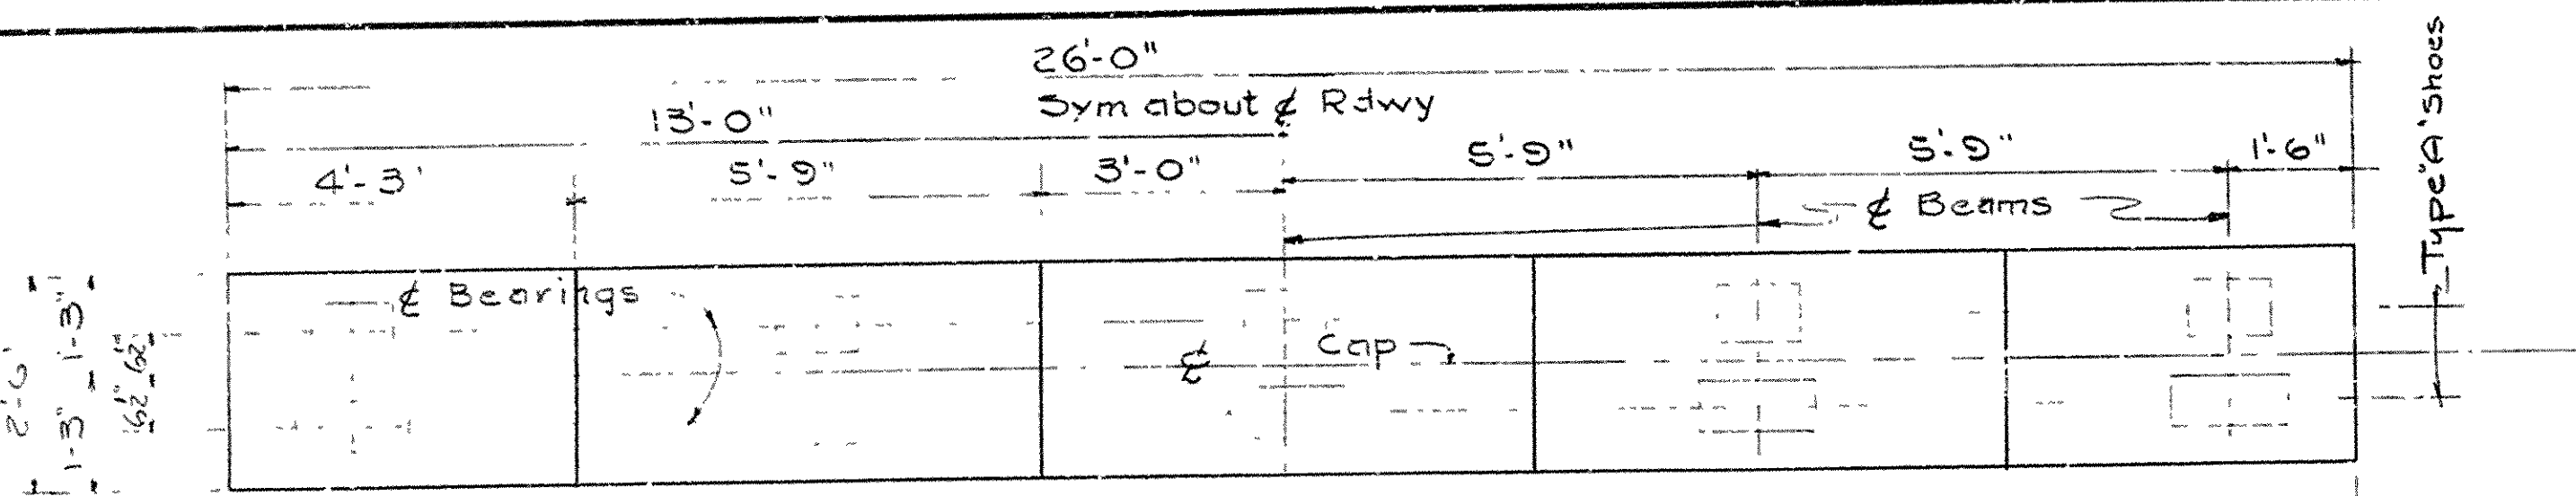 26'-0"
Sym about ℄ Rdwy
13'-0"
4'-3'
5'-9"
3'-0"
5'-9"
5'-9"
1'-6"
℄ Beams
Type "A" Shoes
℄ Bearings
℄ Cap
2'-6'
1'-3" 1'-3"
6½" 6½"